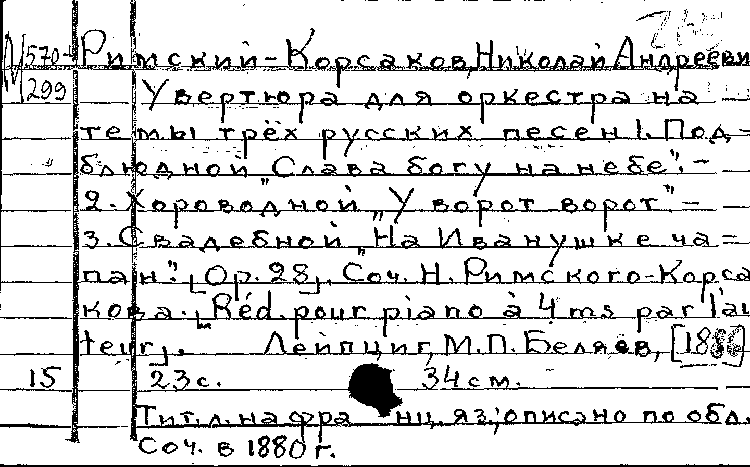 N 570-
299
Римский-Корсаков, Николай Андрееви
Увертюра для оркестра на
темы трёх русских песен 1. Под=
блюдной „Слава богу на небе". -
2. Хороводной „У ворот ворот" -
3. Свадебной „На Иванушке ча=
пан". Op. 28. Соч. Н. Римского-Корса
кова. Réd. pour piano à 4 ms par l'au
teur. Лейпциг, М.П. Беляев,
15 23 с. 34 см.
Тит. л. на франц. яз.; описано по обл.
Соч. в 1880 г.